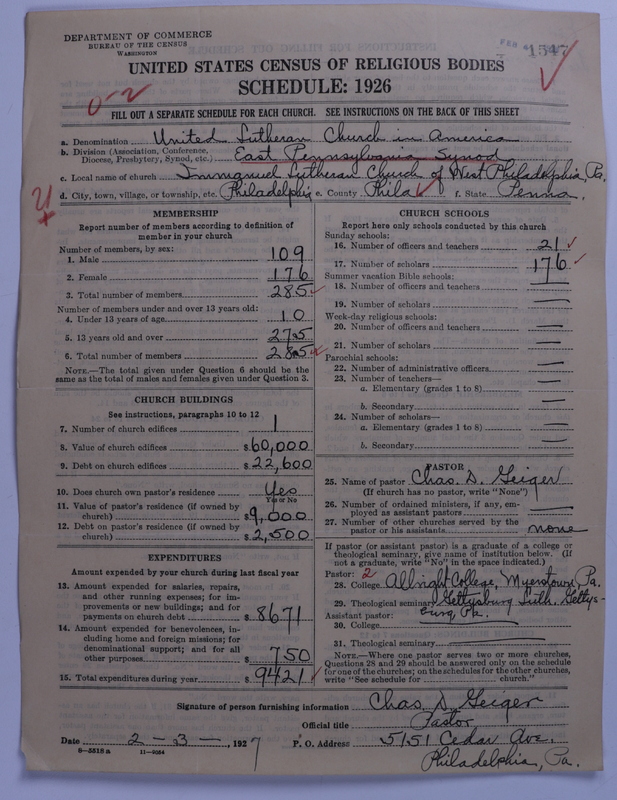 DEPARTMENT OF COMMERCE
BUREAU OF THE CENSUS
WASHINGTON
FEB
1547
UNITED STATES CENSUS OF RELIGIOUS BODIES
SCHEDULE: 1926
0-2
FILL OUT A SEPARATE SCHEDULE FOR EACH CHURCH. SEE INSTRUCTIONS ON THE BACK OF THIS SHEET
a. Denomination United Lutheran Church in America
b. Division (Association, Conference, Diocese, Presbytery, Synod, etc.) East Pennsylvania Synod
c. Local name of church Immanuel Lutheran Church of West Philadelphia, Pa.
d. City, town, village, or township, etc. Philadelphia e. County Phila f. State Penna.
MEMBERSHIP
Report number of members according to definition of
member in your church
Number of members, by sex:
1. Male 109
2. Female 176
3. Total number of members 285
Number of members under and over 13 years old:
4. Under 13 years of age 10
5. 13 years old and over 275
6. Total number of members 285
NOTE.—The total given under Question 6 should be the
same as the total of males and females given under Question 3.
CHURCH BUILDINGS
See instructions, paragraphs 10 to 12
7. Number of church edifices 1
8. Value of church edifices $60,000
9. Debt on church edifices $22,600
10. Does church own pastor's residence Yes
Yes or No
11. Value of pastor's residence (if owned by
church) $9,000
12. Debt on pastor's residence (if owned by
church) $2,500
EXPENDITURES
Amount expended by your church during last fiscal year
13. Amount expended for salaries, repairs,
and other running expenses; for im-
provements or new buildings; and for
payments on church debt $8671
14. Amount expended for benevolences, in-
cluding home and foreign missions; for
denominational support; and for all
other purposes $750
15. Total expenditures during year $9421
CHURCH SCHOOLS
Report here only schools conducted by this church
Sunday schools:
16. Number of officers and teachers 21
17. Number of scholars 176
Summer vacation Bible schools:
18. Number of officers and teachers —
19. Number of scholars —
Week-day religious schools:
20. Number of officers and teachers —
21. Number of scholars —
Parochial schools:
22. Number of administrative officers —
23. Number of teachers—
a. Elementary (grades 1 to 8) —
b. Secondary —
24. Number of scholars—
a. Elementary (grades 1 to 8) —
b. Secondary —
PASTOR
25. Name of pastor Chas. D. Geiger
(If church has no pastor, write "None")
26. Number of ordained ministers, if any, em-
ployed as assistant pastors —
27. Number of other churches served by the
pastor or his assistants none
If pastor (or assistant pastor) is a graduate of a college or
theological seminary, give name of institution below. (If
not a graduate, write "No" in the space indicated.)
Pastor: 2
28. College Albright College, Myerstown Pa.
29. Theological seminary Gettysburg Luth. Gettys-
Assistant pastor: burg, Pa.
30. College —
31. Theological seminary —
NOTE.—Where one pastor serves two or more churches,
Questions 28 and 29 should be answered only on the schedule
for one of the churches; on the schedules for the other churches,
write "See schedule for church."
Signature of person furnishing information Chas. D. Geiger
Official title Pastor
Date 2-3-, 1927 P. O. Address 5151 Cedar Ave.
8-5518 a 11-9354 Philadelphia, Pa.